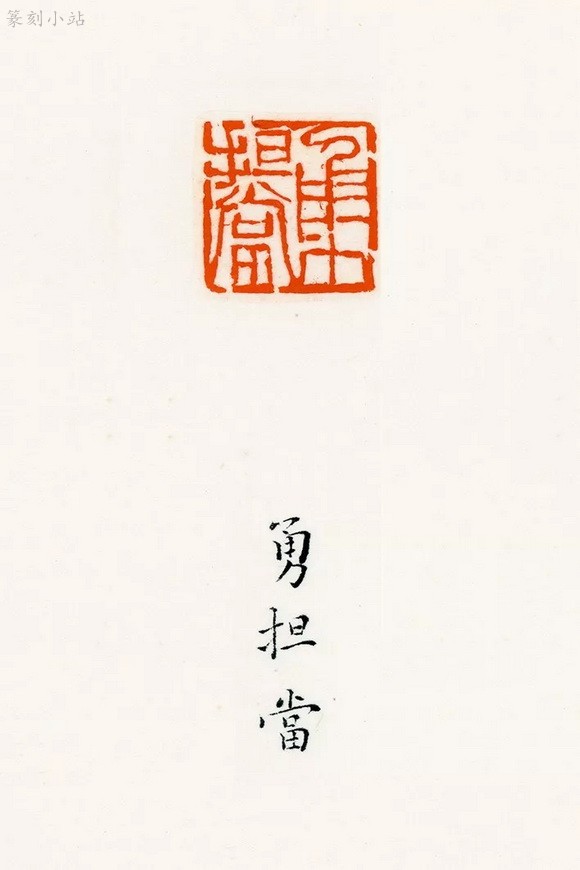 篆刻小站
勇担當
勇
担
當